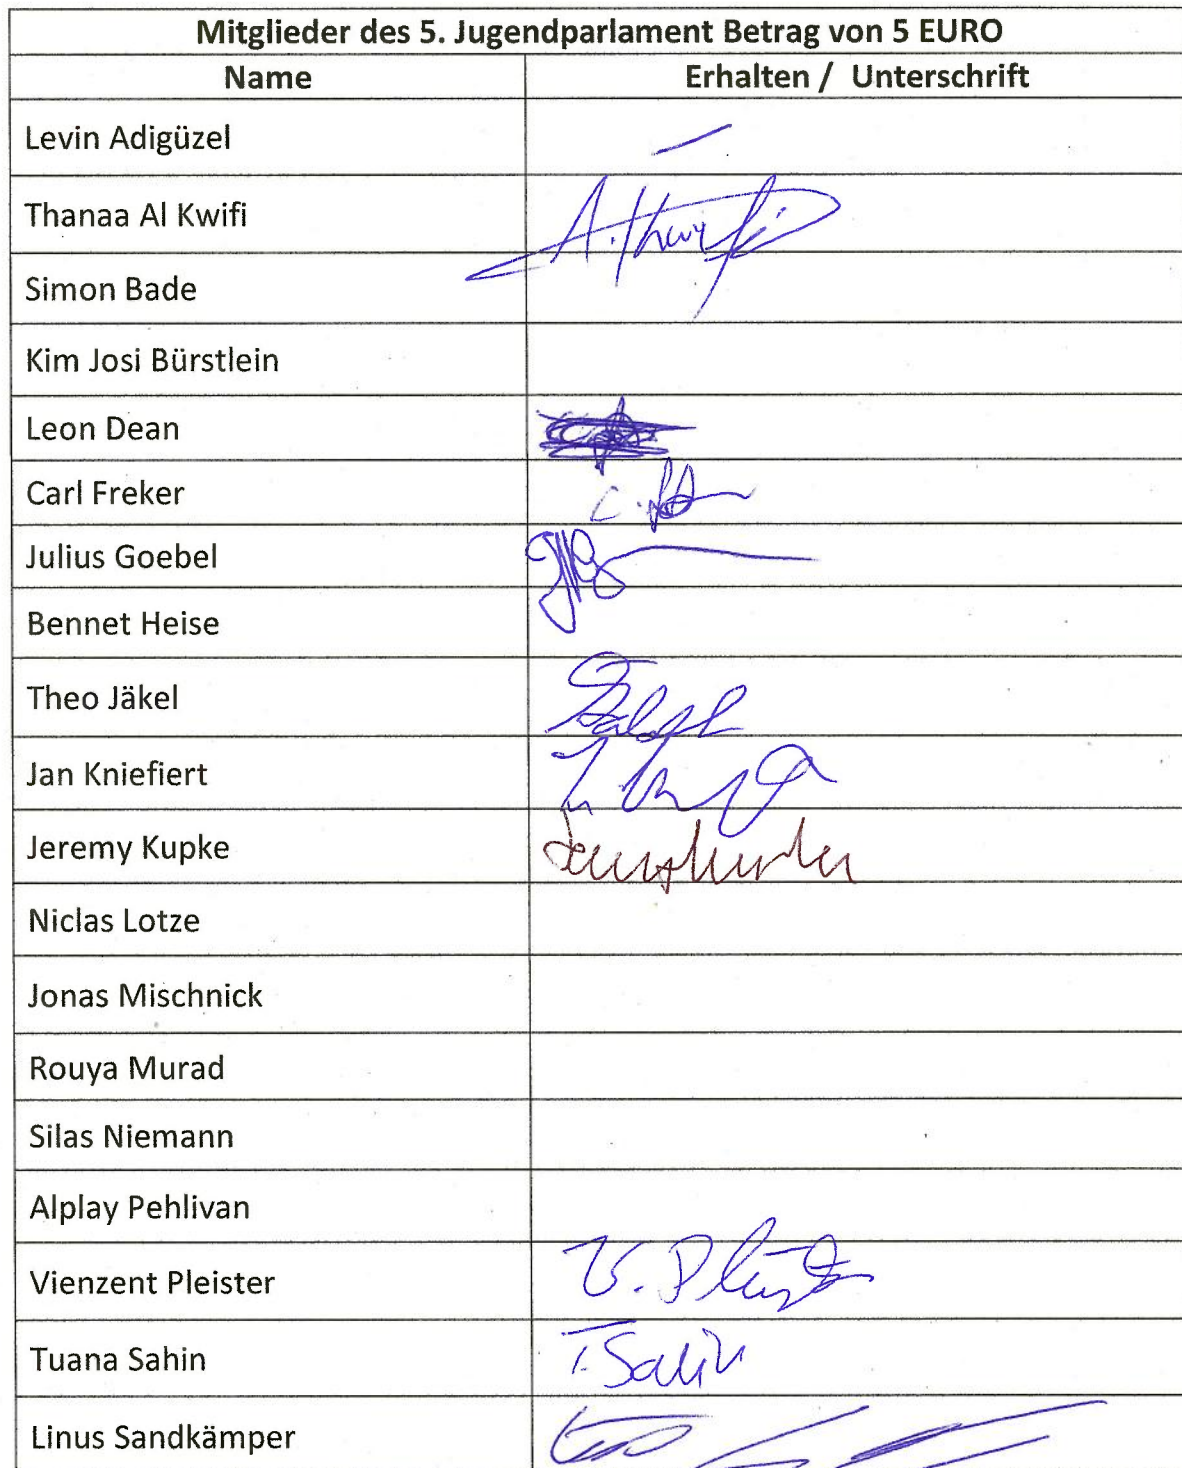 Mitglieder des 5. Jugendparlament Betrag von 5 EURO
Name Erhalten / Unterschrift
Levin Adigüzel
Thanaa Al Kwifi
Simon Bade
Kim Josi Bürstlein
Leon Dean
Carl Freker
Julius Goebel
Bennet Heise
Theo Jäkel
Jan Kniefiert
Jeremy Kupke
Niclas Lotze
Jonas Mischnick
Rouya Murad
Silas Niemann
Alplay Pehlivan
Vienzent Pleister
Tuana Sahin T. Sahin
Linus Sandkämper